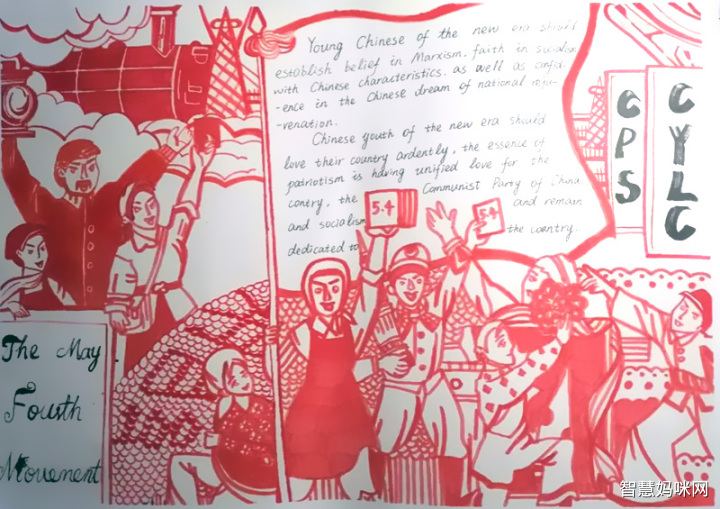 Young Chinese of the new era should
establish belief in Marxism, faith in socialism
with Chinese characteristics, as well as confid-
-ence in the Chinese dream of national reju-
-venation.
Chinese youth of the new era should
love their country ardently, the essence of
patriotism is having unified love for the
contry, the Communist Party of China
and socialism and remain
dedicated to the country.
5.4
5.4
CPS
CYLC
The May
Fourth
Movement
智慧妈咪网